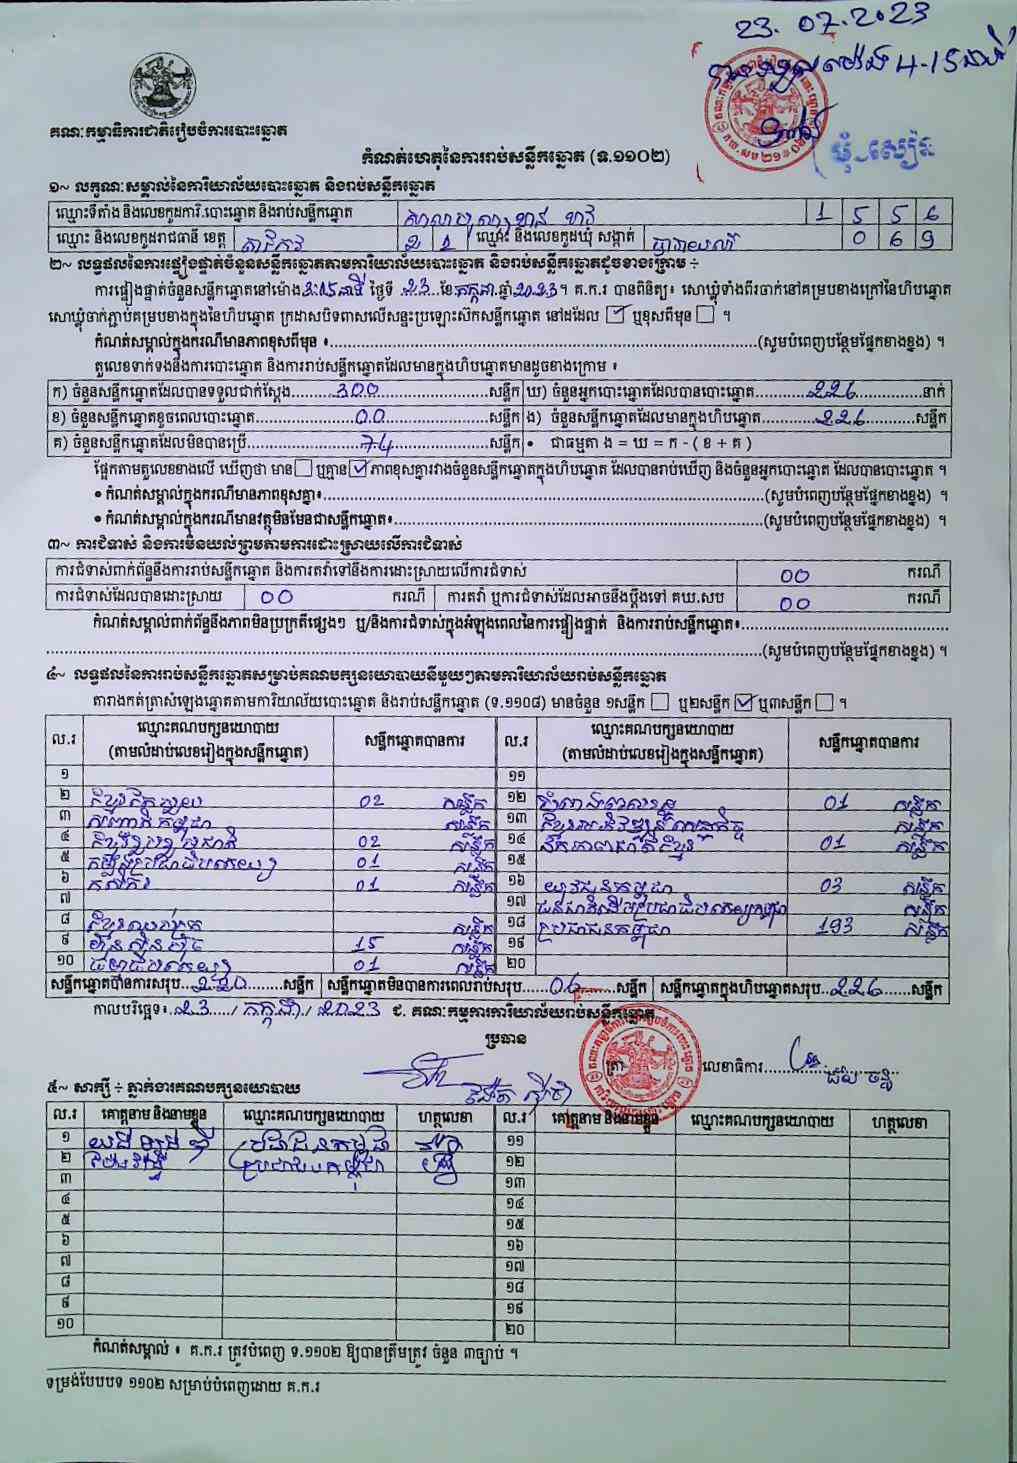 23. 07. 2023
4-15 នាទី
គណៈកម្មាធិការជាតិរៀបចំការបោះឆ្នោត
កំណត់ហេតុនៃការរាប់សន្លឹកឆ្នោត (ទ.១១០២)
១~ លក្ខណៈសម្គាល់នៃការិយាល័យបោះឆ្នោត និងរាប់សន្លឹកឆ្នោត
ឈ្មោះទីតាំង និងលេខកូដការិ.បោះឆ្នោត និងរាប់សន្លឹកឆ្នោត 1 5 5 6
ឈ្មោះ និងលេខកូដរាជធានី ខេត្ត 2 1 ឈ្មោះ និងលេខកូដឃុំ សង្កាត់ 0 6 9
២~ លទ្ធផលនៃការផ្ទៀងផ្ទាត់ចំនួនសន្លឹកឆ្នោតតាមការិយាល័យបោះឆ្នោត និងរាប់សន្លឹកឆ្នោតដូចខាងក្រោម ÷
ការផ្ទៀងផ្ទាត់ចំនួនសន្លឹកឆ្នោតនៅម៉ោង 3:05 នាទី ថ្ងៃទី 23 ខែ កក្កដា ឆ្នាំ 2023។ គ.ក.រ បានពិនិត្យ៖ សោឃ្លុំទាំងពីរចាក់នៅគម្របខាងក្រៅនៃហិបឆ្នោត
សោឃ្លុំចាក់ភ្ជាប់គម្របខាងក្នុងនៃហិបឆ្នោត ក្រដាសបិទពាសលើសន្ទះប្រឡោះស៊កសន្លឹកឆ្នោត នៅដដែល ☑ ឬខុសពីមុន ☐ ។
កំណត់សម្គាល់ក្នុងករណីមានភាពខុសពីមុន ៖ (សូមបំពេញបន្ថែមផ្នែកខាងខ្នង) ។
តួលេខទាក់ទងនឹងការបោះឆ្នោត និងការរាប់សន្លឹកឆ្នោតដែលមានក្នុងហិបឆ្នោតមានដូចខាងក្រោម ៖
ក) ចំនួនសន្លឹកឆ្នោតដែលបានទទួលជាក់ស្តែង 300 សន្លឹក ឃ) ចំនួនអ្នកបោះឆ្នោតដែលបានបោះឆ្នោត 226 នាក់
ខ) ចំនួនសន្លឹកឆ្នោតខូចពេលបោះឆ្នោត 00 សន្លឹក ង) ចំនួនសន្លឹកឆ្នោតដែលមានក្នុងហិបឆ្នោត 226 សន្លឹក
គ) ចំនួនសន្លឹកឆ្នោតដែលមិនបានប្រើ 74 សន្លឹក • ជាធម្មតា ង = ឃ = ក - ( ខ + គ )
ផ្អែកតាមតួលេខខាងលើ ឃើញថា មាន ☐ ឬគ្មាន ☑ ភាពខុសគ្នារវាងចំនួនសន្លឹកឆ្នោតក្នុងហិបឆ្នោត ដែលបានរាប់ឃើញ និងចំនួនអ្នកបោះឆ្នោត ដែលបានបោះឆ្នោត ។
• កំណត់សម្គាល់ក្នុងករណីមានភាពខុសគ្នា៖ (សូមបំពេញបន្ថែមផ្នែកខាងខ្នង) ។
• កំណត់សម្គាល់ក្នុងករណីមានវត្ថុមិនមែនជាសន្លឹកឆ្នោត៖ (សូមបំពេញបន្ថែមផ្នែកខាងខ្នង) ។
៣~ ការជំទាស់ និងការមិនយល់ព្រមតាមការដោះស្រាយលើការជំទាស់
ការជំទាស់ពាក់ព័ន្ធនឹងការរាប់សន្លឹកឆ្នោត និងការតវ៉ាទៅនឹងការដោះស្រាយលើការជំទាស់ 00 ករណី
ការជំទាស់ដែលបានដោះស្រាយ 00 ករណី ការតវ៉ា ឬការជំទាស់ដែលអាចនឹងប្តឹងទៅ គឃ.សប 00 ករណី
កំណត់សម្គាល់ពាក់ព័ន្ធនឹងភាពមិនប្រក្រតីផ្សេងៗ ឬ/និងការជំទាស់ក្នុងអំឡុងពេលនៃការផ្ទៀងផ្ទាត់ និងការរាប់សន្លឹកឆ្នោត៖
(សូមបំពេញបន្ថែមផ្នែកខាងខ្នង) ។
៤~ លទ្ធផលនៃការរាប់សន្លឹកឆ្នោតសម្រាប់គណបក្សនយោបាយនីមួយៗតាមការិយាល័យរាប់សន្លឹកឆ្នោត
តារាងកត់ត្រាសំឡេងឆ្នោតតាមការិយាល័យបោះឆ្នោត និងរាប់សន្លឹកឆ្នោត (ទ.១១០៨) មានចំនួន ១សន្លឹក ☐ ឬ២សន្លឹក ☑ ឬ៣សន្លឹក ☐ ។
ល.រ ឈ្មោះគណបក្សនយោបាយ (តាមលំដាប់លេខរៀងក្នុងសន្លឹកឆ្នោត) សន្លឹកឆ្នោតបានការ ល.រ ឈ្មោះគណបក្សនយោបាយ (តាមលំដាប់លេខរៀងក្នុងសន្លឹកឆ្នោត) សន្លឹកឆ្នោតបានការ
១ ១១
២ 02 សន្លឹក ១២ 01 សន្លឹក
៣ សន្លឹក ១៣ សន្លឹក
៤ 02 សន្លឹក ១៤ 01 សន្លឹក
៥ 01 សន្លឹក ១៥
៦ កសិករ 01 សន្លឹក ១៦ យុវជនកម្ពុជា 03 សន្លឹក
៧ ១៧ សន្លឹក
៨ សន្លឹក ១៨ ប្រជាជនកម្ពុជា 193 សន្លឹក
៩ ហ្វ៊ុនស៊ិនប៉ិច 15 សន្លឹក ១៩
១០ 01 សន្លឹក ២០
សន្លឹកឆ្នោតបានការសរុប 220 សន្លឹក សន្លឹកឆ្នោតមិនបានការពេលរាប់សរុប 06 សន្លឹក សន្លឹកឆ្នោតក្នុងហិបឆ្នោតសរុប 226 សន្លឹក
កាលបរិច្ឆេទ៖ 23 / កក្កដា / 2023 ជ. គណៈកម្មការការិយាល័យរាប់សន្លឹកឆ្នោត
ប្រធាន
ត្រា លេខាធិការ
៥~ សាក្សី ÷ ភ្នាក់ងារគណបក្សនយោបាយ
ល.រ គោត្តនាម និងនាមខ្លួន ឈ្មោះគណបក្សនយោបាយ ហត្ថលេខា ល.រ គោត្តនាម និងនាមខ្លួន ឈ្មោះគណបក្សនយោបាយ ហត្ថលេខា
១ ប្រជាជនកម្ពុជា ១១
២ ប្រជាជនកម្ពុជា ១២
៣ ១៣
៤ ១៤
៥ ១៥
៦ ១៦
៧ ១៧
៨ ១៨
៩ ១៩
១០ ២០
កំណត់សម្គាល់ ៖ គ.ក.រ ត្រូវបំពេញ ទ.១១០២ ឱ្យបានត្រឹមត្រូវ ចំនួន ៣ច្បាប់ ។
ទម្រង់បែបបទ ១១០២ សម្រាប់បំពេញដោយ គ.ក.រ